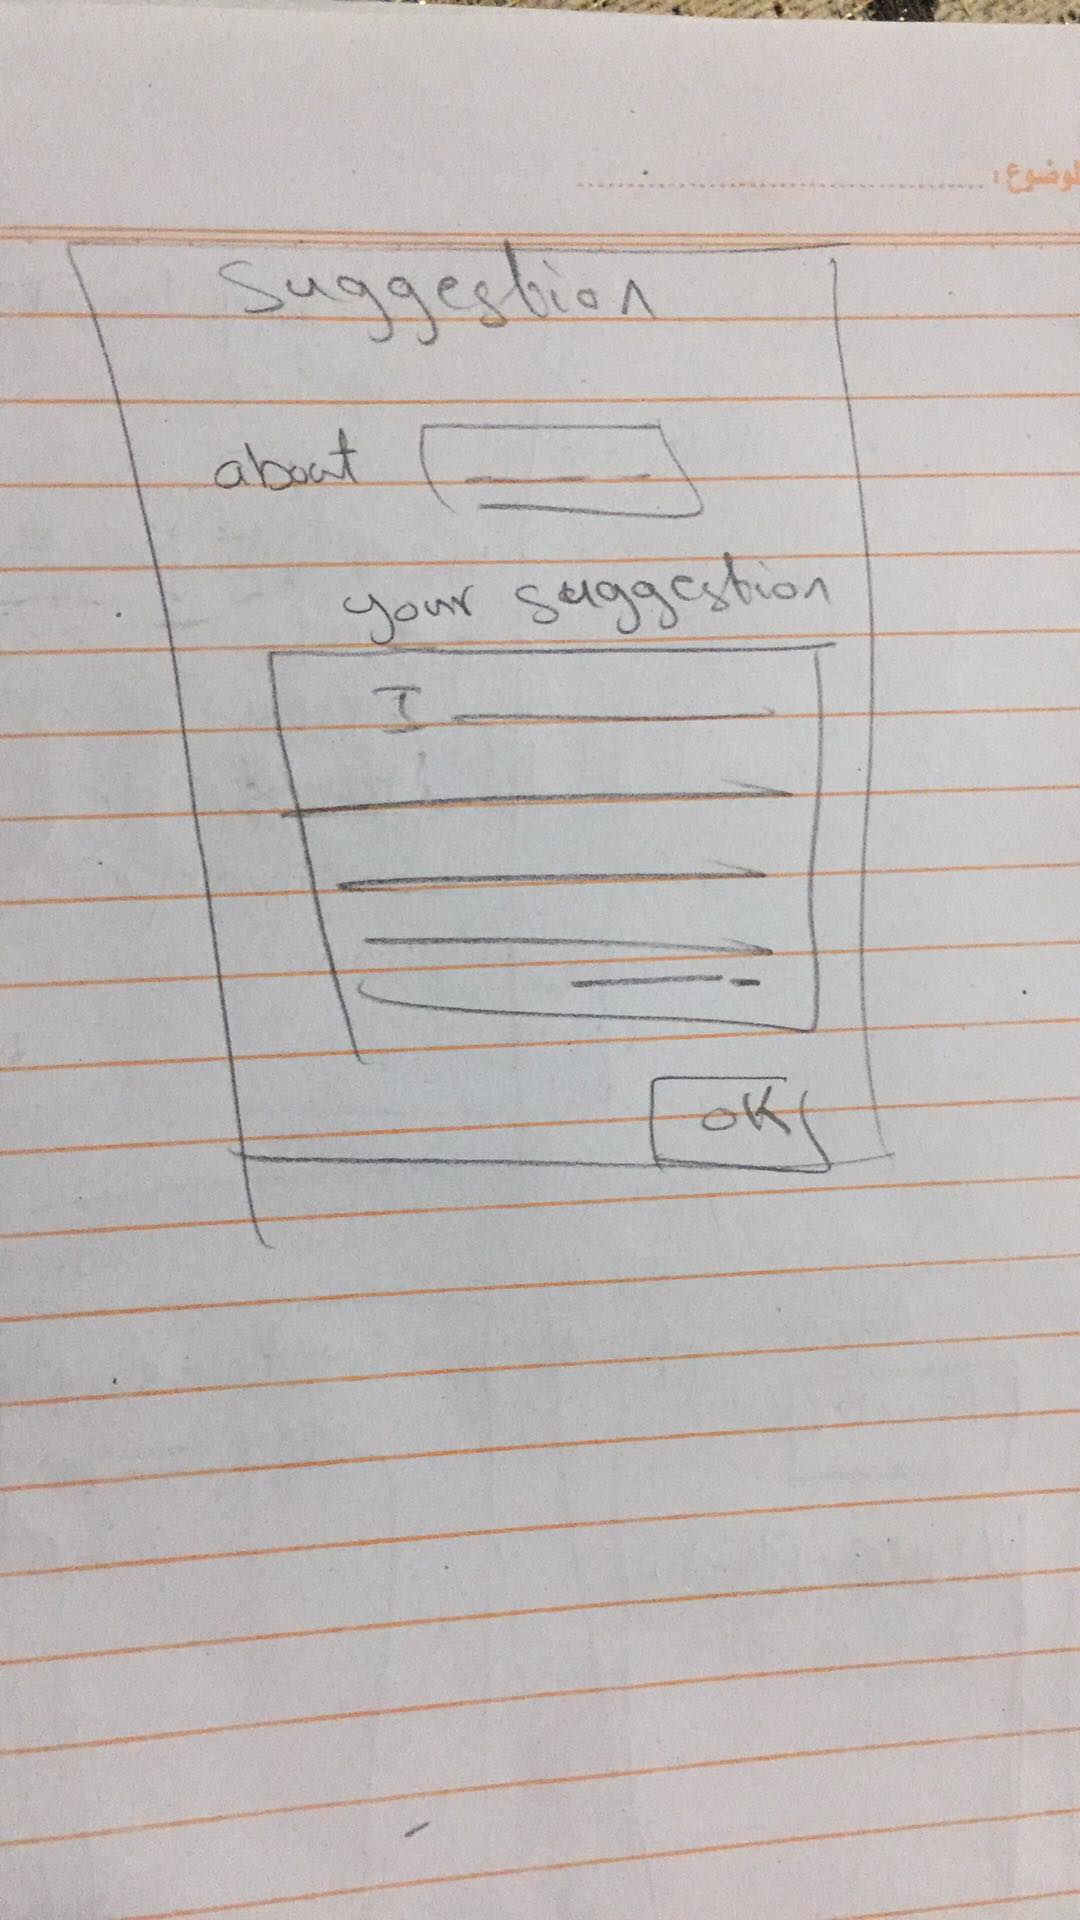 الموضوع :
Suggestion
about
your suggestion
I
OK